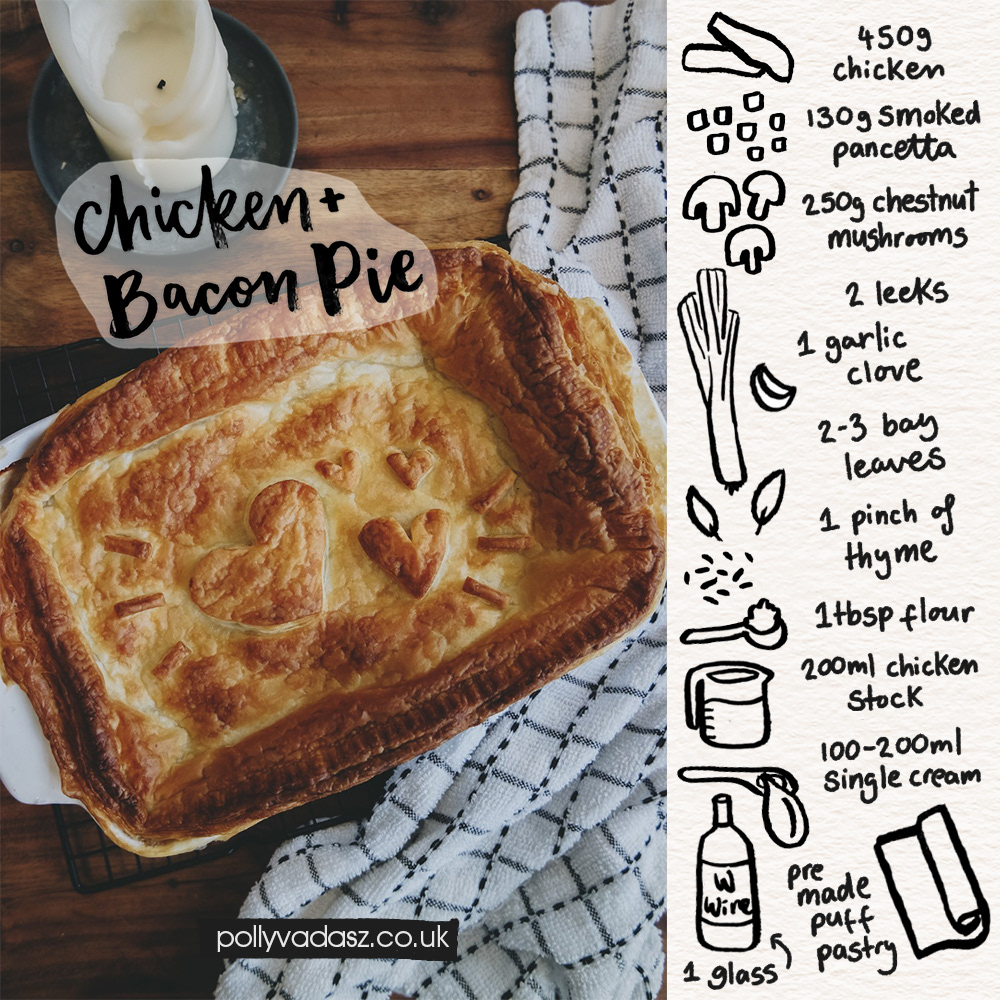 chicken +
Bacon Pie
450g
chicken
130g smoked
pancetta
250g chestnut
mushrooms
2 leeks
1 garlic
clove
2-3 bay
leaves
1 pinch of
thyme
1 tbsp flour
200ml chicken
stock
100-200ml
single cream
W
Wine
1 glass
pre
made
puff
pastry
pollyvadasz.co.uk